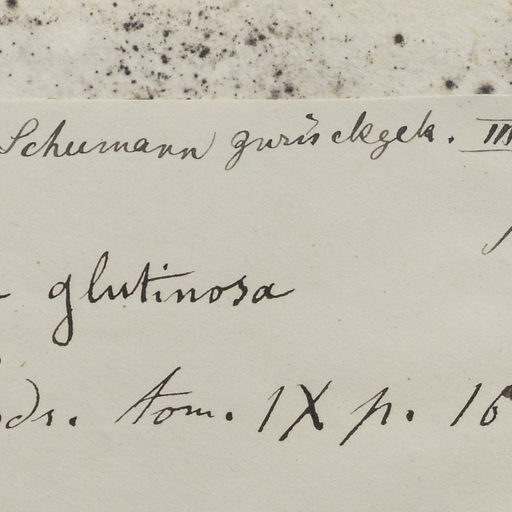 Schumann zurückgek. III
glutinosa
ds. tom. IX p. 16